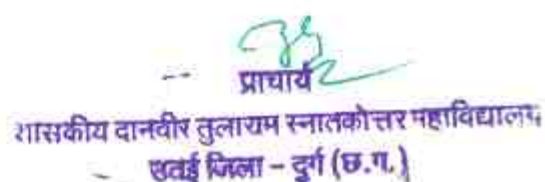 प्राचार्य
शासकीय दानवीर तुलाराम स्नातकोत्तर महाविद्यालय,
उतई जिला – दुर्ग (छ.ग.)